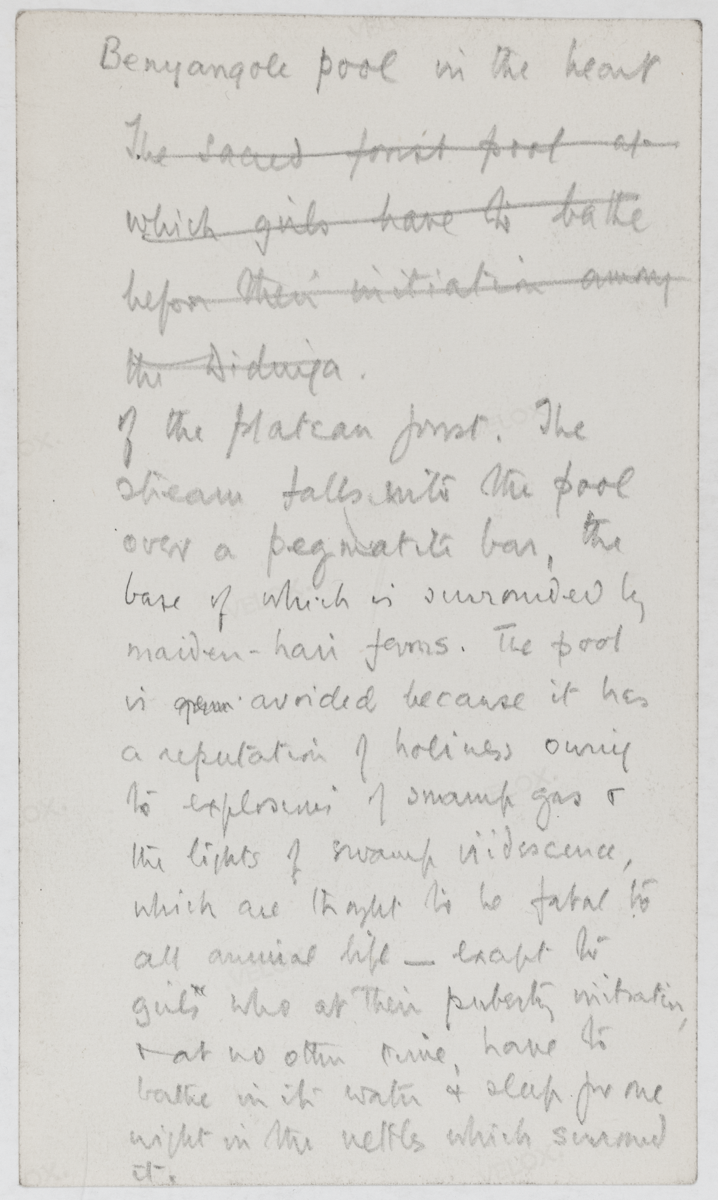 Benyangole pool in the heart
The sacred forest pool at
which girls have to bathe
before their initiation among
the Didinga.
of the plateau forest. The
stream falls into the pool
over a pegmatite bar, the
base of which is surrounded by
maiden-hair ferns. The pool
is avoided because it has
a reputation of holiness owing
to explosions of swamp gas &
the lights of swamp iridescence,
which are thought to be fatal to
all animal life — except to
girls who at their puberty initiation,
& at no other time, have to
bathe in its water & sleep for one
night in the nettles which surround
it.
VELOX